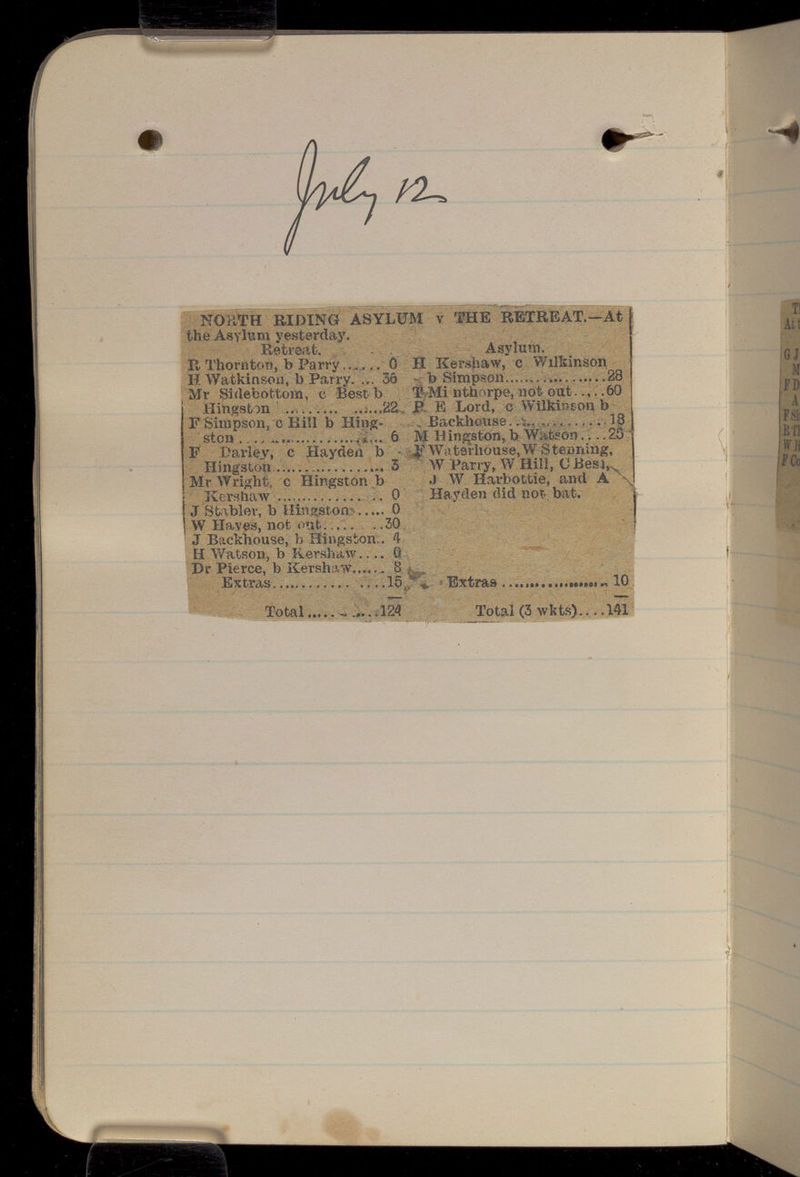 July 12
NORTH RIDING ASYLUM v THE RETREAT.—At
the Asylum yesterday.
Retreat.
R Thornton, b Parry...... 0
H Watkinson, b Parry. ... 36
Mr Sidebottom, c Best b
Hingston ............22
F Simpson, c Hill b Hing-
ston .................... 6
F Darley, c Hayden b
Hingston................. 3
Mr Wright, c Hingston b
Kershaw ................ 0
J Stabler, b Hingston...... 0
W Hayes, not out..... ..30
J Backhouse, b Hingston.. 4
H Watson, b Kershaw.... 0
Dr Pierce, b Kershaw...... 8
Extras............ ....15
Total..... ....124
Asylum.
H Kershaw, c Wilkinson
b Simpson.................28
T Mi nthorpe, not out.....60
P E Lord, c Wilkinson b
Backhouse............... 18
M Hingston, b Watson....25
F Waterhouse, W Stenning,
W Parry, W Hill, C Best,
J W Harbottie, and A
Hayden did not bat.
Extras ................... 10
Total (3 wkts)....141
T
At
G J
M
F D
A
F Si
W H
F Co